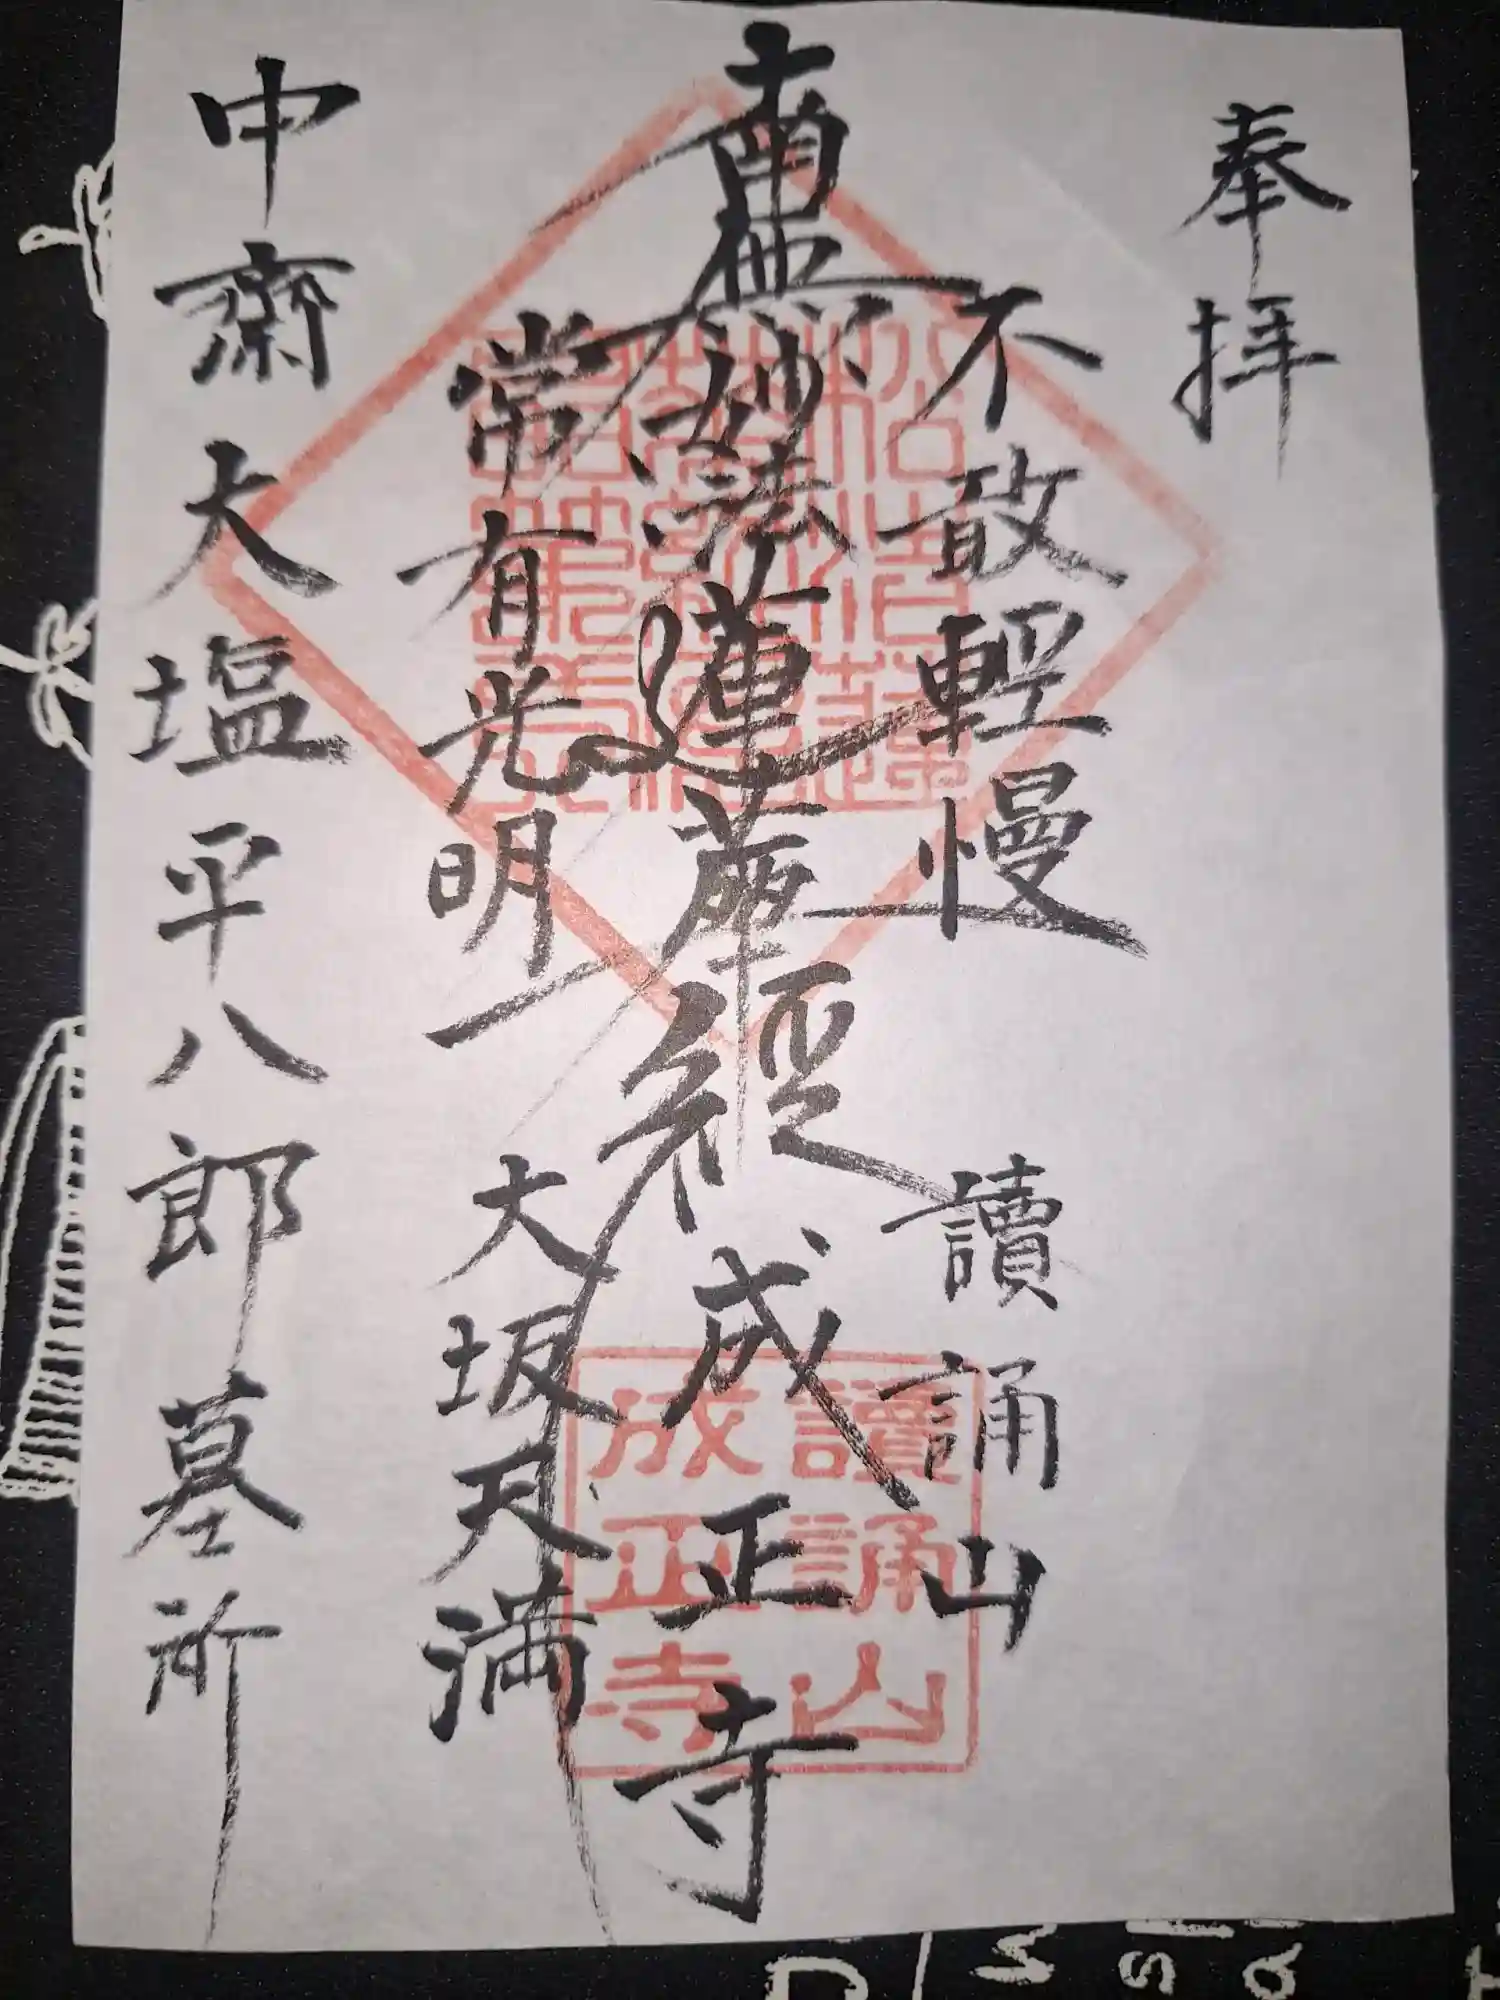 奉拝
不敢輕慢
讀誦山
南無妙法蓮華經
成正寺
常有光明
大坂天満
中齋大塩平八郎墓所
讀誦山
成正寺